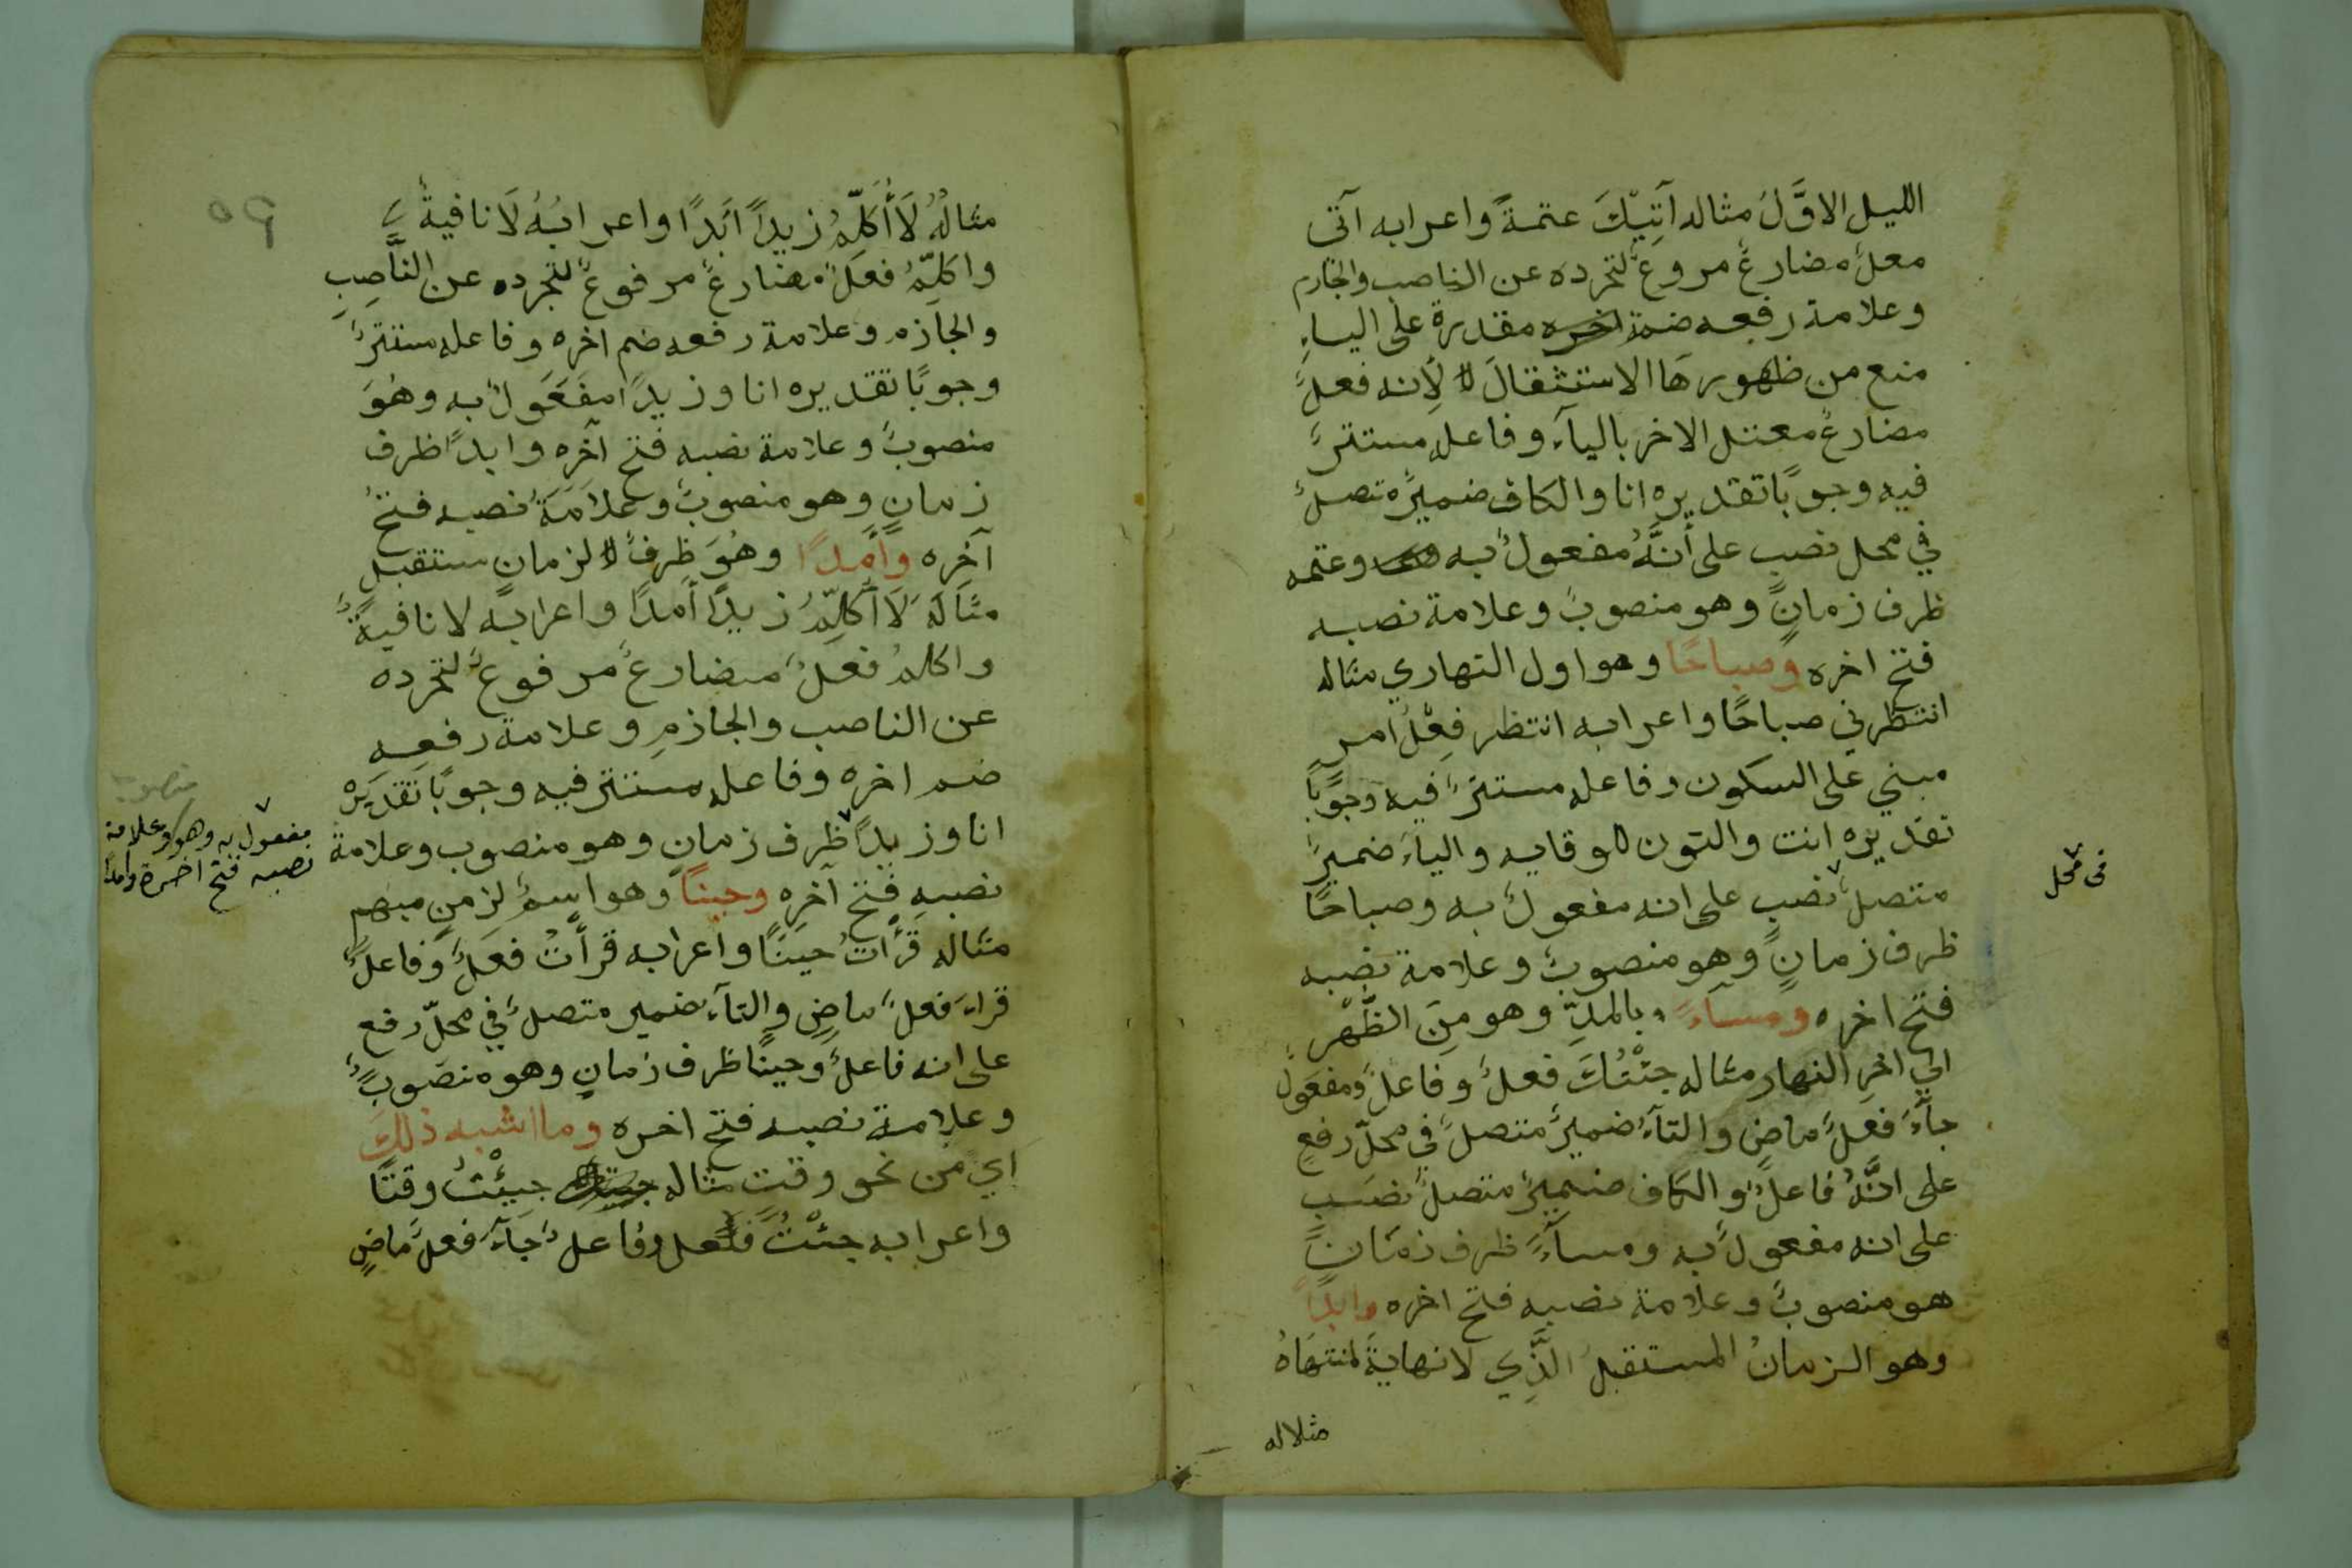 الليل الاوَّلَ مثاله آتِيْكَ عتمةً واعرابه آتى
معلٌ مضارعٌ مروعٌ لتجرده عن الناصب والجازم
وعلامة رفعه ضمة اخره مقدرة على الياءِ
منع من ظهورهَا الاستثقالَ لأنه فعلٌ
مضارعٌ معتل الاخر بالياءِ وفاعله مستترٌ
فيه وجوبًا تقديره انا والكاف ضميرٌ متصلٌ
في محل نصب على أنَّهُ مفعولٌ به وعتمه
ظرف زمانٍ وهو منصوبٌ وعلامة نصبه
فتح اخره وصباحًا وهو اول النهاري مثاله
انتظرني صباحًا واعرابه انتظر فِعْلُ امر
مبني على السكون وفاعله مستترٌ فيه وجوبًا
تقديره انت والنون للوقايه والياءَ ضميرٌ
متصلٌ نصب على انه مفعولٌ به وصباحًا
في محل
ظرف زمانٍ وهو منصوبٌ وعلامة نصبه
فتح اخره ومساءً بالمدِّ وهو مِنَ الظُّهْرِ
الي اخرِ النهار مثاله جئْتُكَ فعلٌ وفاعلٌ ومفعولٌ
جآءَ فعلٌ ماضٍ والتآءُ ضميرٌ متصلٌ في محلّ رفعٍ
على انَّهُ فاعلٌ والكاف ضميرٌ متصلٌ نصب
على انه مفعولٌ به ومسآءً ظرف زمانٍ
هو منصوبٌ وعلامة نصبه فتح اخره وابدًا
وهو الزمانُ المستقبلُ الَّذِي لا نهايةَ لمنتهَاهُ
مثلاله
٥٩
مثالهُ لَا أُكَلِّمُ زيدًا ابَدًا واعرابُهُ لَا نافيةٌ
واكلِّمُ فعلٌ مضارعٌ مرفوعٌ لتجرده عن النَّاصِبِ
والجازم وعلامة رفعه ضم اخره وفاعله مستترٌ
وجوبًا تقديره انا وزيدًا مفعولٌ به وهُوَ
منصوبٌ وعلامة نصبه فتح آخرِه وابدًا ظرف
زمانٍ وهو منصوبٌ وعلامَةُ نصبه فتحُ
آخره وأمدًا وهُوَ ظرفٌ لزمانٍ مستقبلٍ
مثالَهُ لَا أُكَلِّمُ زيدًا أمدًا واعرابه لا نافيةٌ
واكلمُ فعلٌ مضارعٌ مرفوعٌ لتجرده
عن الناصب والجازمِ وعلامة رفعِهِ
ضم اخره وفاعله مستتر فيه وجوبًا تقديرُه
انا وزيدًا ظرف زمانٍ وهو منصوب وعلامة
منصوب
مفعول به وهو وعلامة
نصبه فتح اخره وامدا
نصبهِ فتح آخرِه وحينًا وهو اسمٌ لزمنٍ مبهم
مثاله قرَأْتُ حينًا واعرابه قرأتُ فعلٌ وفاعلٌ
قراءَ فعلٌ ماضٍ والتآء ضمير متصلٌ في محلّ رفع
على انه فاعلٌ وحينًا ظرف زمانٍ وهو منصوبٌ
وعلامة نصبه فتح اخره وما اشبه ذلكَ
اي من نحو وقتٍ مثاله جيئْتُ وقتًا
واعرابه جئْتُ فعل وفاعلٌ جآءَ فعلٌ ماضٍ